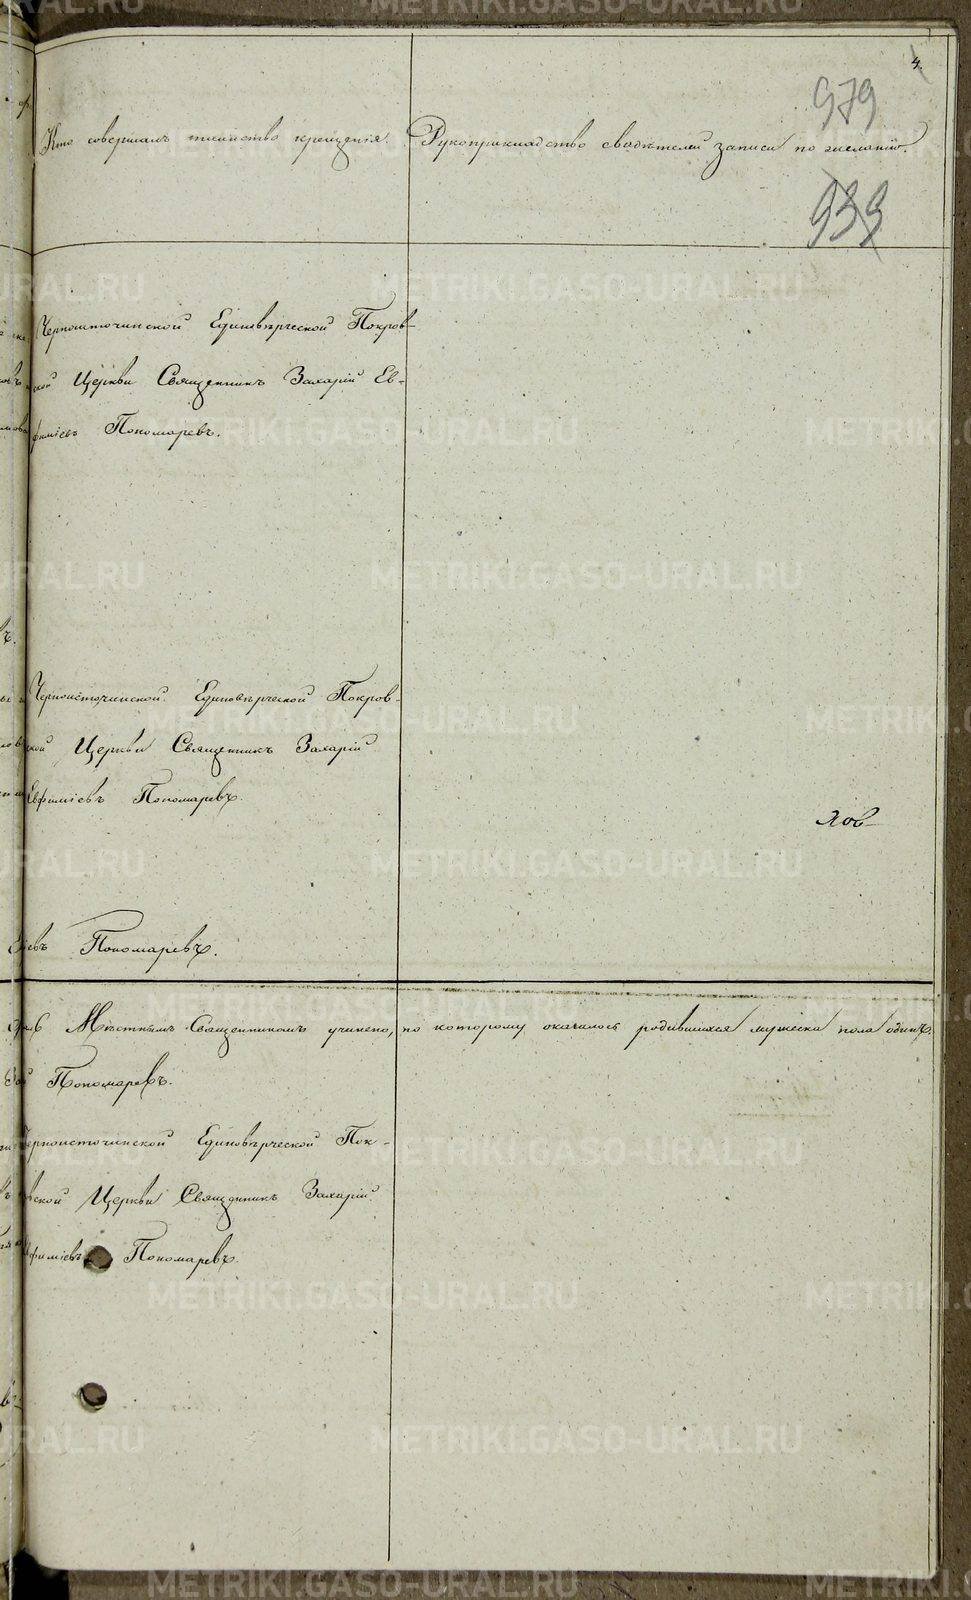 4.
979
Кто совершалъ таинство крещенія. Рукоприкладство свидѣтелей записи по желанію.
939
Черноисточинской Единовѣрческой Покров-
ской Церкви Священникъ Захарій Ев-
фиміевъ Пономаревъ.
Черноисточинской Единовѣрческой Покров-
ской Церкви Священникъ Захарій
Евфиміевъ Пономаревъ.
Яов-
Пономаревъ.
Мѣстнымъ Священникомъ учинено, по которому оказалось родившихся мужеска пола одинъ.
Пономаревъ.
Черноисточинской Единовѣрческой Пок-
вской Церкви Священникъ Захарій
Евфиміевъ Пономаревъ.
METRIKI.GASO-URAL.RU